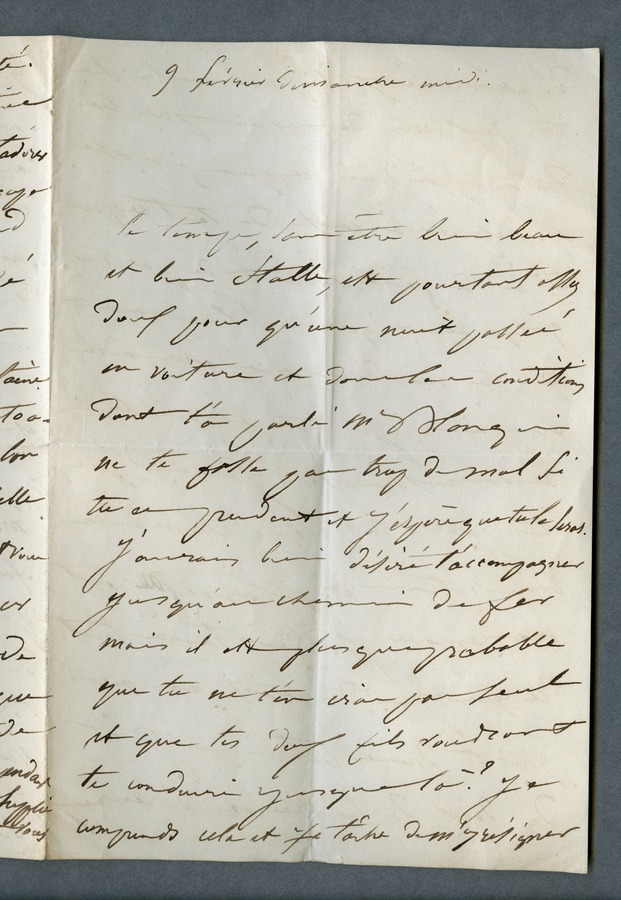 9 février Dimanche midi.
le temps, sans être bien beau
et bien stable, est pourtant assez
doux pour qu'une nuit passée
en voiture et dans les conditions
dont t'a parlé Mr
ne te fasse pas trop de mal si
tu es prudent et j'espère que tu le seras.
J'aurais bien désiré t'accompagner
jusqu'au chemin de fer
mais il est plus que probable
que tu ne t'en iras pas seul
et que tes deux fils voudront
te conduire jusque là ? Je
comprends cela et je tâche de m'y résigner
té.
tadores
d
é
taine
too-
bon
elle
er
de
que
de
supplie
vous